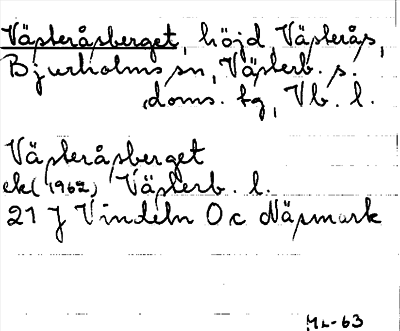 Västeråsberget, höjd, Västerås,
Bjurholms sn, Västerb. s.
doms. tg, Vb. l.
Västeråsberget
ek (1962) Västerb. l.
21 J Vindeln 0c Näsmark
ML-63